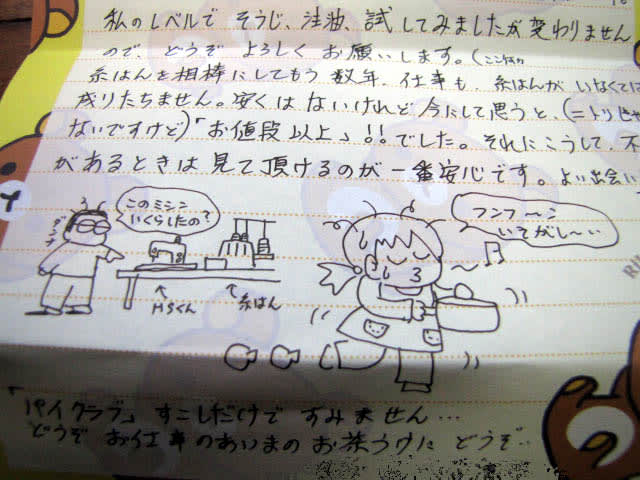 私のレベルで そうじ、注油、試してみましたが変わりません
ので、どうぞ よろしく お願いします。(ここなか
糸はんを相棒にしてもう 数年、仕事も 糸はんが いなくては
成りたちません。安くは ないけれど 今にして思うと、(ニトリじゃ
ないですけど)「お値段以上」!!でした。それにこうして、不
があるときは見て頂けるのが一番安心です。よい出会い
このミシン
いくらしたの?
ダンナ
フンフ〜ン
いそがし〜‥
MSくん
糸はん
「パイクラブ」すこしだけで すみません…
どうぞ お仕事のあいまの お茶うけに どうぞ‥